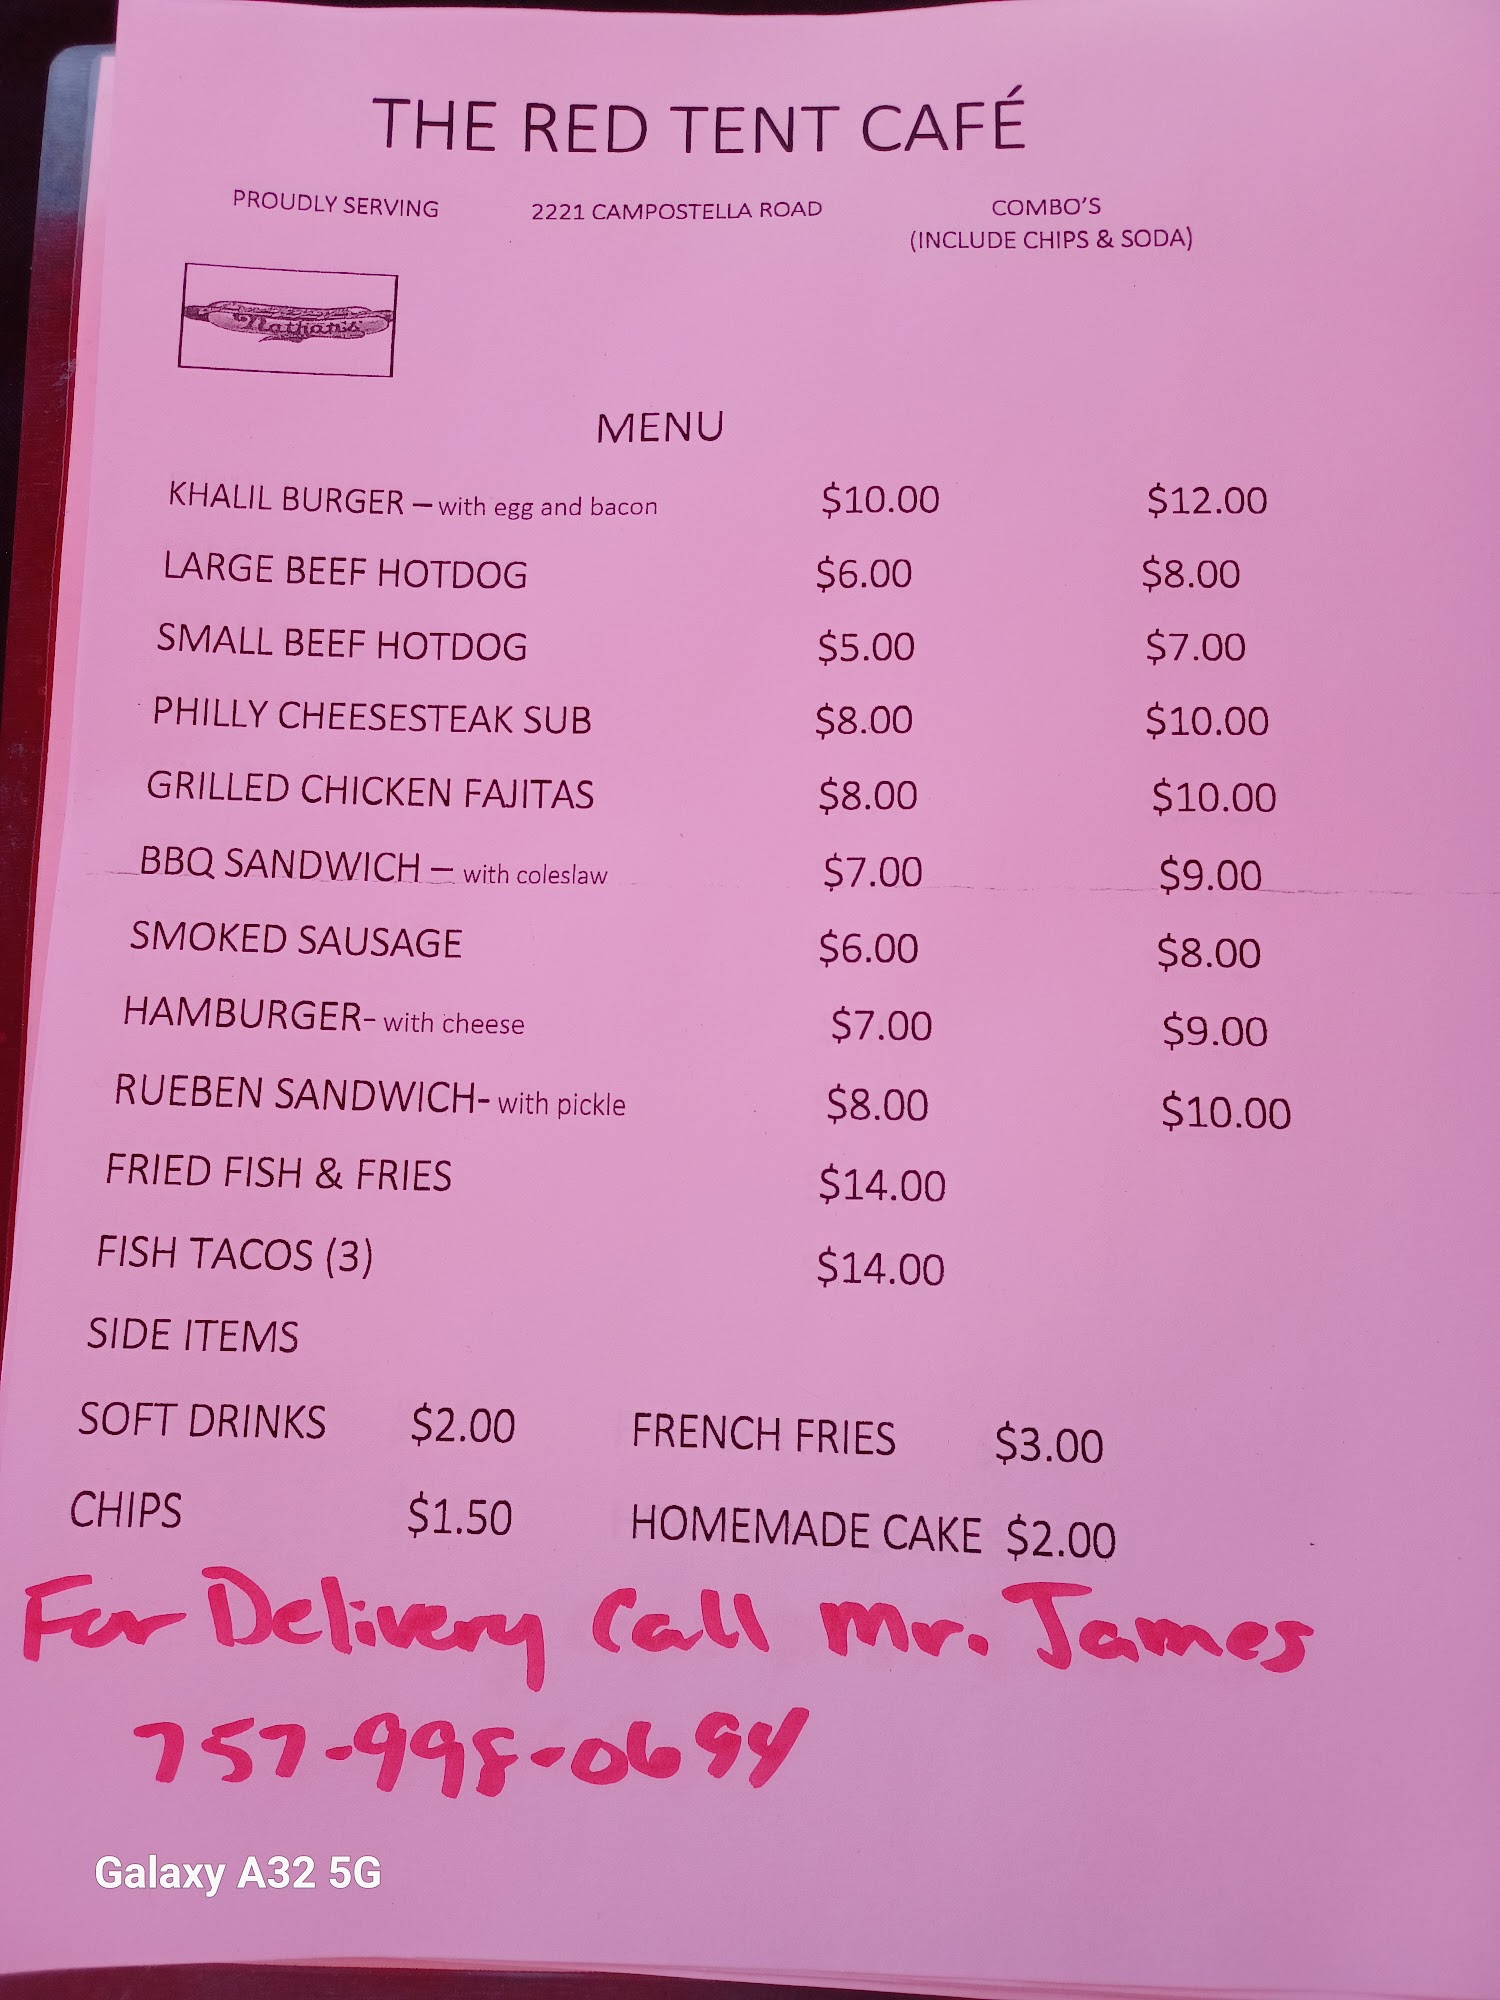 THE RED TENT CAFÉ
PROUDLY SERVING 2221 CAMPOSTELLA ROAD COMBO'S
(INCLUDE CHIPS & SODA)
Nathan's
MENU
KHALIL BURGER – with egg and bacon $10.00 $12.00
LARGE BEEF HOTDOG $6.00 $8.00
SMALL BEEF HOTDOG $5.00 $7.00
PHILLY CHEESESTEAK SUB $8.00 $10.00
GRILLED CHICKEN FAJITAS $8.00 $10.00
BBQ SANDWICH – with coleslaw $7.00 $9.00
SMOKED SAUSAGE $6.00 $8.00
HAMBURGER- with cheese $7.00 $9.00
RUEBEN SANDWICH- with pickle $8.00 $10.00
FRIED FISH & FRIES $14.00
FISH TACOS (3) $14.00
SIDE ITEMS
SOFT DRINKS $2.00 FRENCH FRIES $3.00
CHIPS $1.50 HOMEMADE CAKE $2.00
For Delivery Call Mr. James
757-998-0694
Galaxy A32 5G